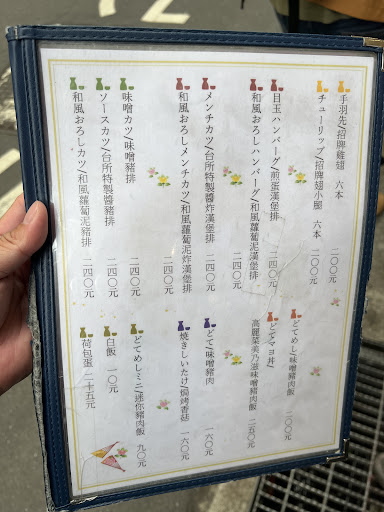 手羽先/招牌雞翅 六本 二〇〇元
チューリップ/招牌翅小腿 六本 二〇〇元
目玉ハンバーグ/煎蛋漢堡排 二四〇元
和風おろしハンバーグ/和風蘿蔔泥漢堡排 二四〇元
メンチカツ/台所特製醬炸漢堡排 二四〇元
和風おろしメンチカツ/和風蘿蔔泥炸漢堡排 二四〇元
味噌カツ/味噌豬排 二四〇元
ソースカツ/台所特製醬豬排 二四〇元
和風おろしカツ/和風蘿蔔泥豬排 二四〇元
どてめし/味噌豬肉飯 二〇〇元
どてマヨ丼/
高麗菜美乃滋味噌豬肉飯 二五〇元
どて/味噌豬肉 一六〇元
焼きしいたけ/焗烤香菇 一六〇元
どてめしミニ/迷你豬肉飯 九〇元
白飯 一〇元
荷包蛋 二十五元